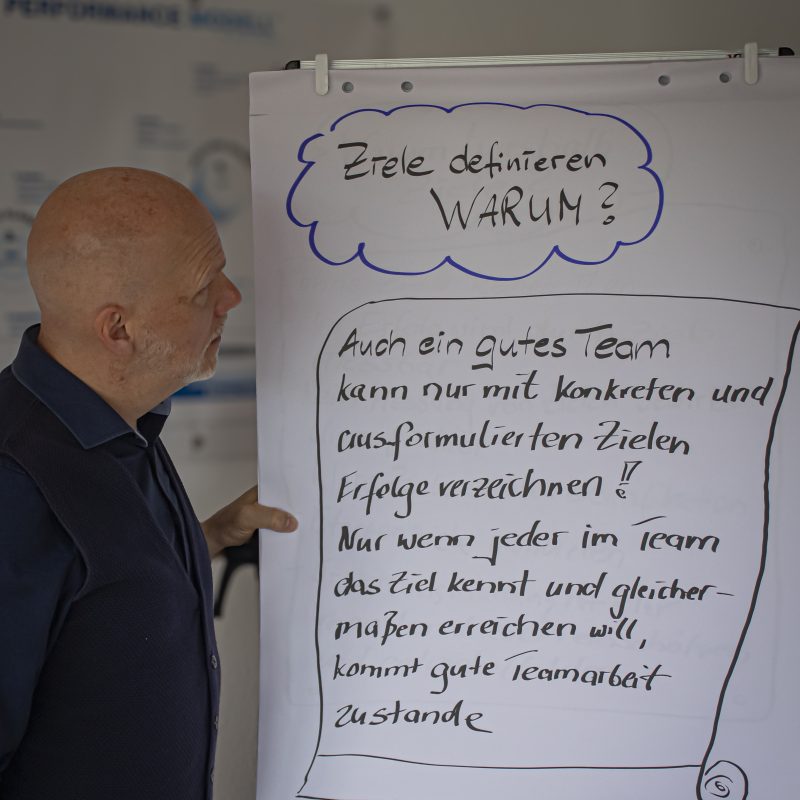 PERFORMANCE MODELL
Ziele definieren
WARUM?
Auch ein gutes Team
kann nur mit konkreten und
ausformulierten Zielen
Erfolge verzeichnen!
Nur wenn jeder im Team
das Ziel kennt und gleicher-
maßen erreichen will,
kommt gute Teamarbeit
zustande